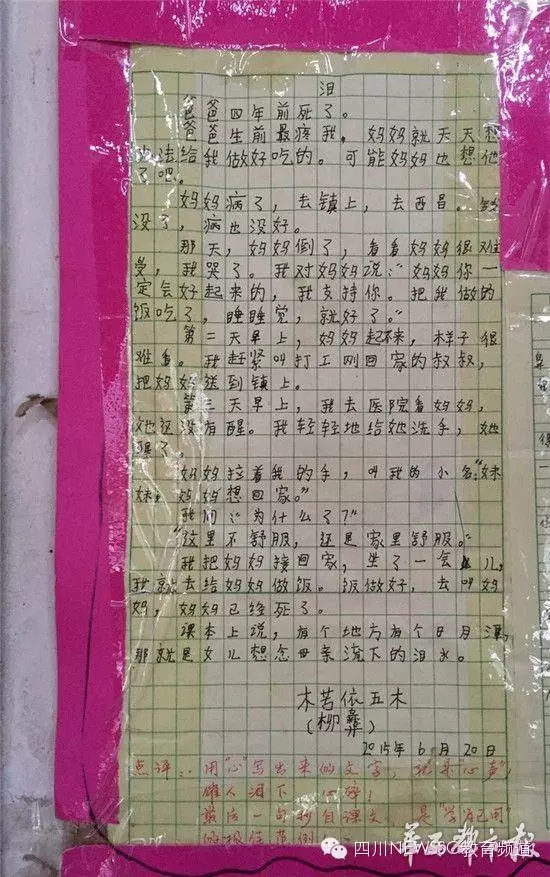 泪
爸爸四年前死了。
爸爸生前最疼我，妈妈就天天想
办法给我做好吃的。可能妈妈也想他
了吧。
妈妈病了，去镇上，去西昌。钱
没了，病也没好。
那天，妈妈倒了，看看妈妈很难
受，我哭了。我对妈妈说：“妈妈你一
定会好起来的，我支持你。把我做的
饭吃了，睡睡觉，就好了。”
第二天早上，妈妈起不来，样子很
难看。我赶紧叫打工刚回家的叔叔，
把妈妈送到镇上。
第三天早上，我去医院看妈妈，
她还没有醒。我轻轻地给她洗手，她
醒了。
妈妈拉着我的手，叫我的小名“妹
妹，妈妈想回家。”
我问：“为什么了？”
“这里不舒服，还是家里舒服。”
我把妈妈接回家，坐了一会儿，
我就去给妈妈做饭。饭做好，去叫妈
妈，妈妈已经死了。
课本上说，有个地方有个日月潭，
那就是女儿想念母亲流下的泪水。
木苦依五木
（柳彝）
2015年6月20日
点评：用“心”写出来的文字，就是“心声”，
催人泪下，心碎！
最后一句抄自课文，是“学为己用”
的极佳范例
四川NEWSDC教育频道
华西都市报